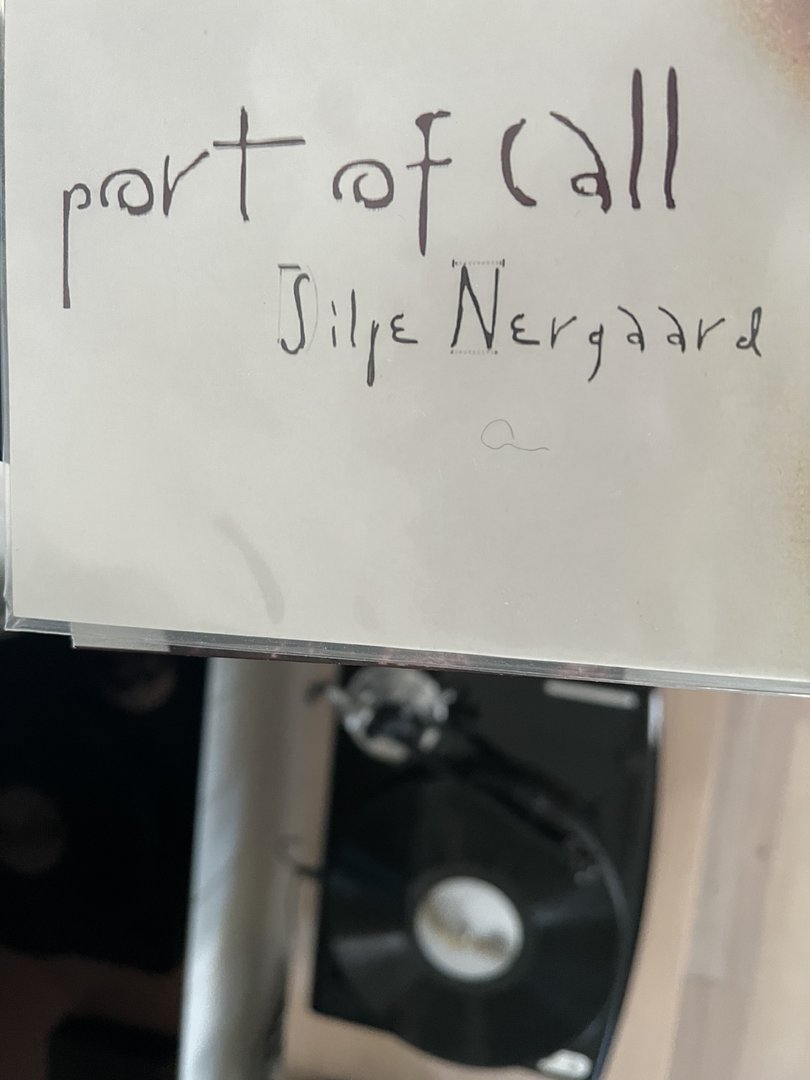 port of Call
Silje Nergaard
a